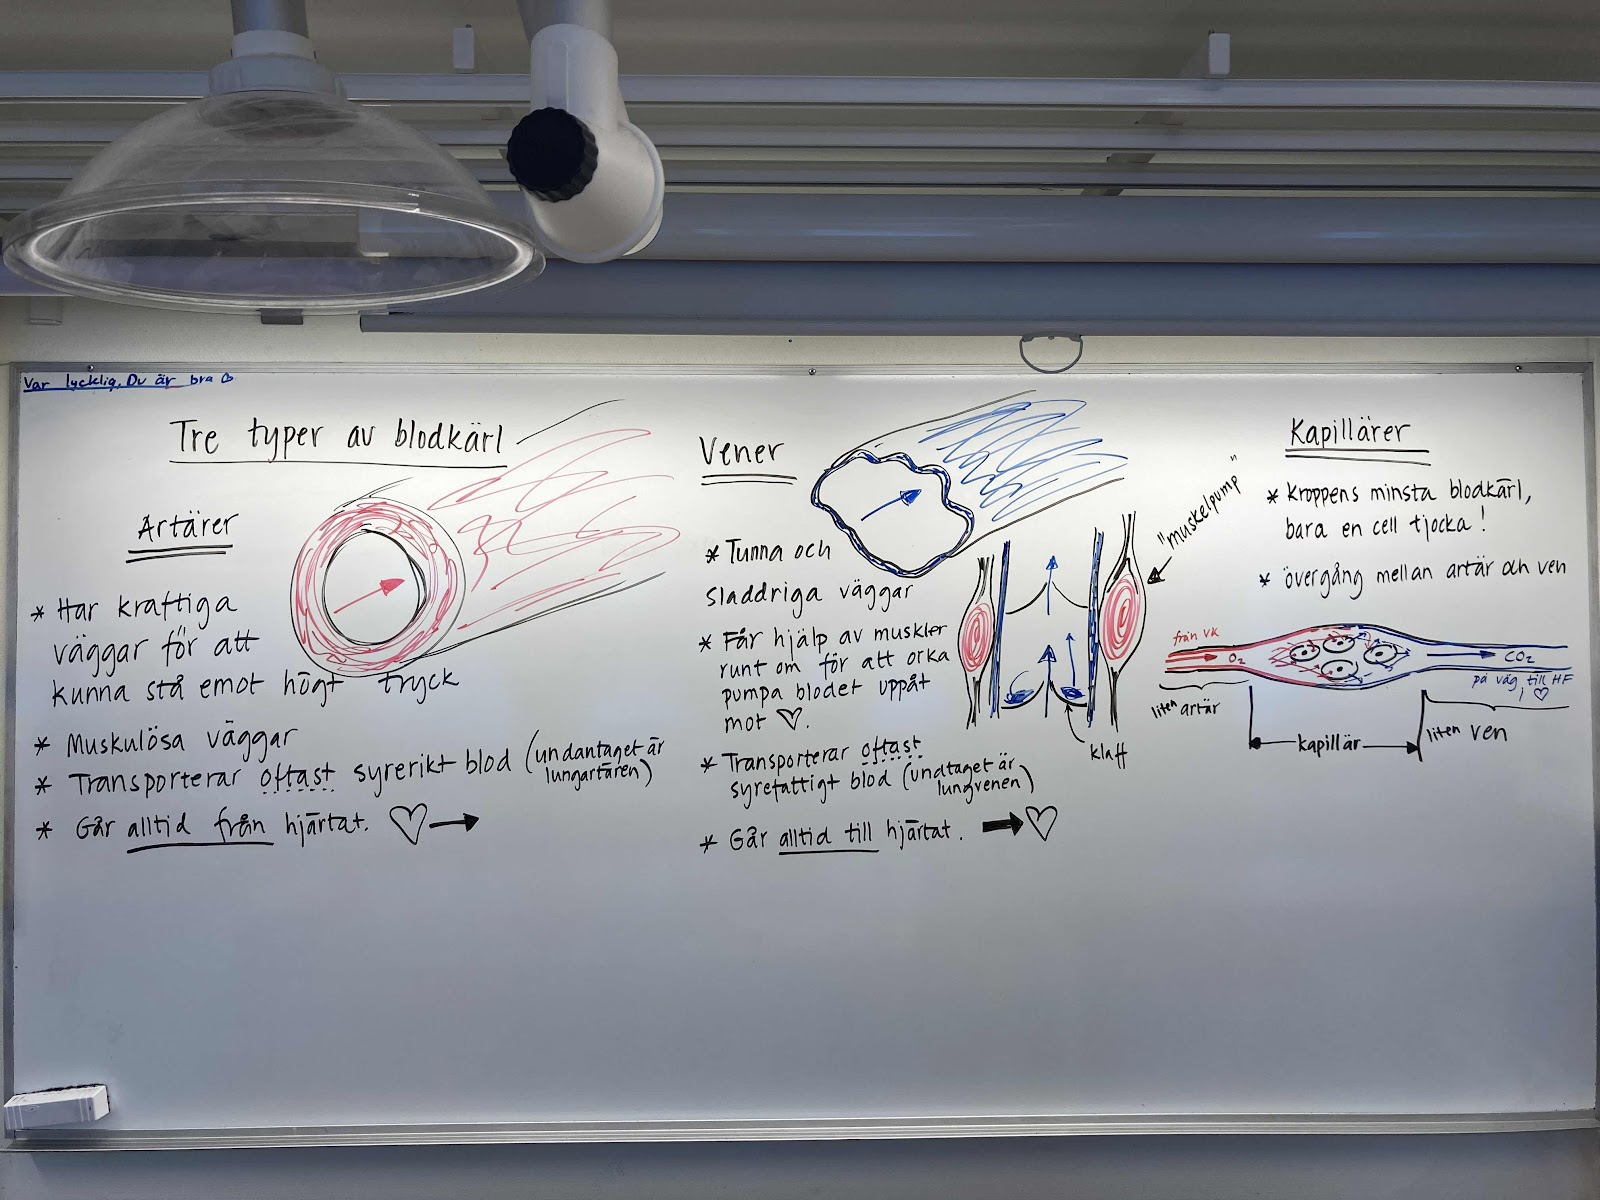 Var lycklig. Du är bra
Tre typer av blodkärl
Artärer
* Har kraftiga
väggar för att
kunna stå emot högt tryck
* Muskulösa väggar
* Transporterar oftast syrerikt blod (undantaget är
lungartären)
* Går alltid från hjärtat.
Vener
* Tunna och
sladdriga väggar
* Får hjälp av muskler
runt om för att orka
pumpa blodet uppåt
mot ♡.
* Transporterar oftast
syrefattigt blod (undtaget är
lungvenen)
* Går alltid till hjärtat.
"muskelpump"
klaff
Kapillärer
* Kroppens minsta blodkärl,
bara en cell tjocka!
* övergång mellan artär och ven
från VK
O₂
CO₂
på väg till HF
i ♡
liten artär
kapillär
liten ven